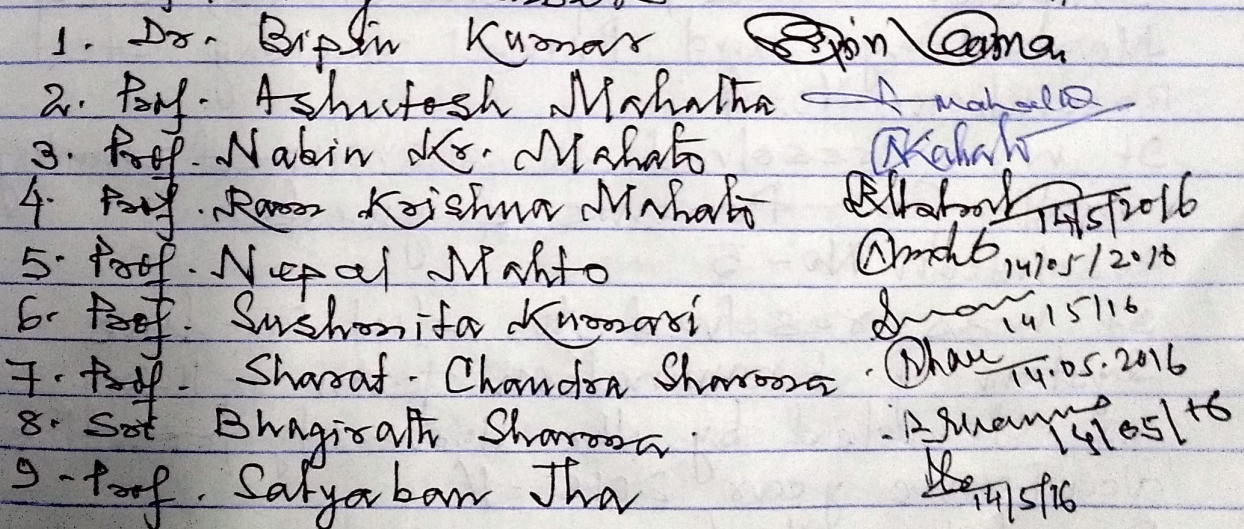 1. Dr. Bipin Kumar Bipin Kumar
2. Prof. Ashutosh Mahatha A Mahatha
3. Prof. Nabin Kr. Mahato NKMahato
4. Prof. Ram Krishna Mahato RKMahato 14/5/2016
5. Prof. Nepal Mahto NMahto 14/05/2016
6. Prof. Sushmita Kumari 14/5/16
7. Prof. Sharat Chandra Sharma 14.05.2016
8. Sri Bhagirath Sharma B Sharma 14/05/16
9. Prof. Satyaban Jha 14/5/16